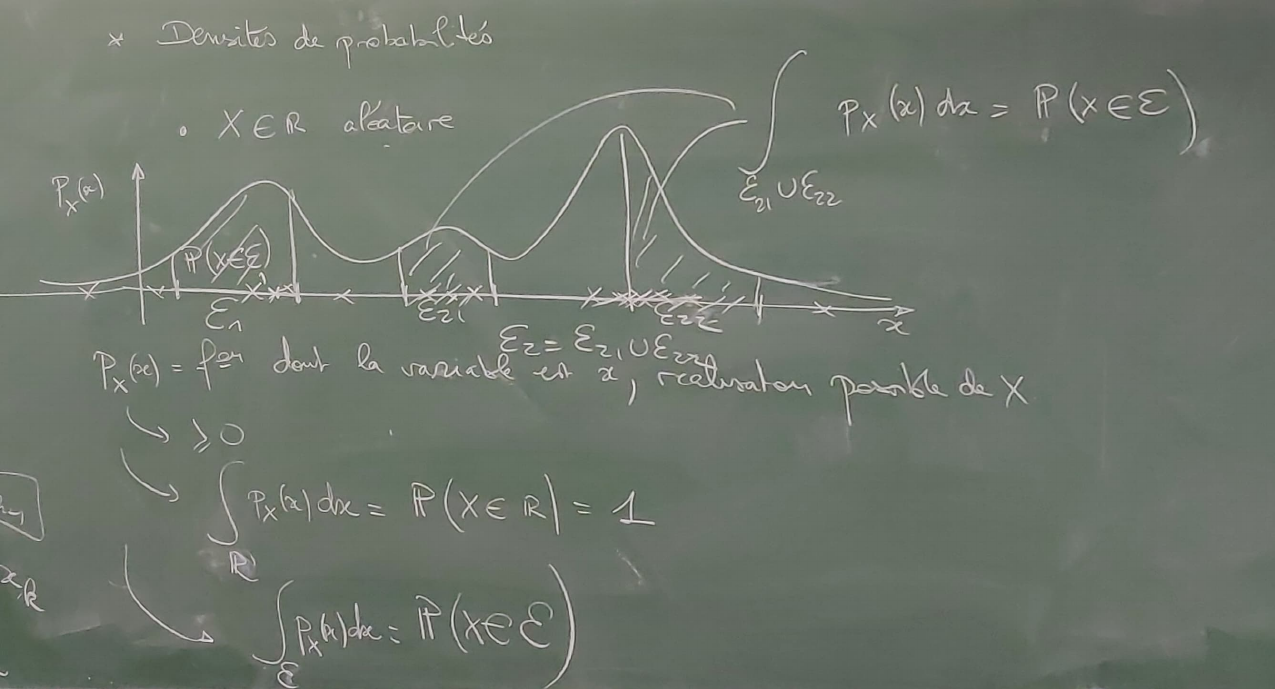 * Densités de probabilités
• X ∈ ℝ aléatoire
∫_{ℰ₂₁ ∪ ℰ₂₂} P_X(x) dx = ℙ(X ∈ ℰ)
P_X(x)
ℙ(X ∈ ℰ)
ℰ₁ ℰ₂₁ ℰ₂₂ x
ℰ₂ = ℰ₂₁ ∪ ℰ₂₂
P_X(x) = fᵒⁿ dont la variable est x, réalisation possible de X
↘ ≥ 0
↘ ∫_ℝ P_X(x) dx = ℙ(X ∈ ℝ) = 1
↘ ∫_ℰ P_X(x) dx = ℙ(X ∈ ℰ)